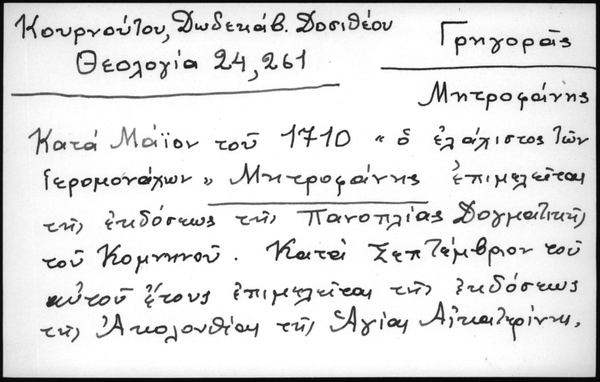 Κουρνούτου, Δωδεκάβ. Δοσιθέου
Θεολογία 24, 261
Γρηγορᾶς
Μητροφάνης
Κατά Μάϊον τοῦ 1710 « ὁ ἐλάχιστος τῶν
Ἱερομονάχων » Μητροφάνης ἐπιμελεῖται
τῆς ἐκδόσεως τῆς Πανοπλίας Δογματικῆς
τοῦ Κομνηνοῦ. Κατά Σεπτέμβριον τοῦ
αὐτοῦ ἔτους ἐπιμελεῖται τῆς ἐκδόσεως
τῆς Ἀκολουθίας τῆς Ἁγίας Αἰκατερίνης.